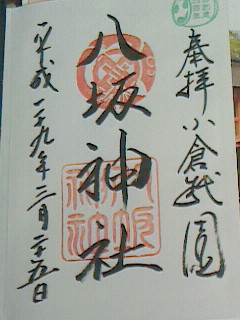 奉拝 小倉祇園
八坂神社
平成二十九年三月二十五日